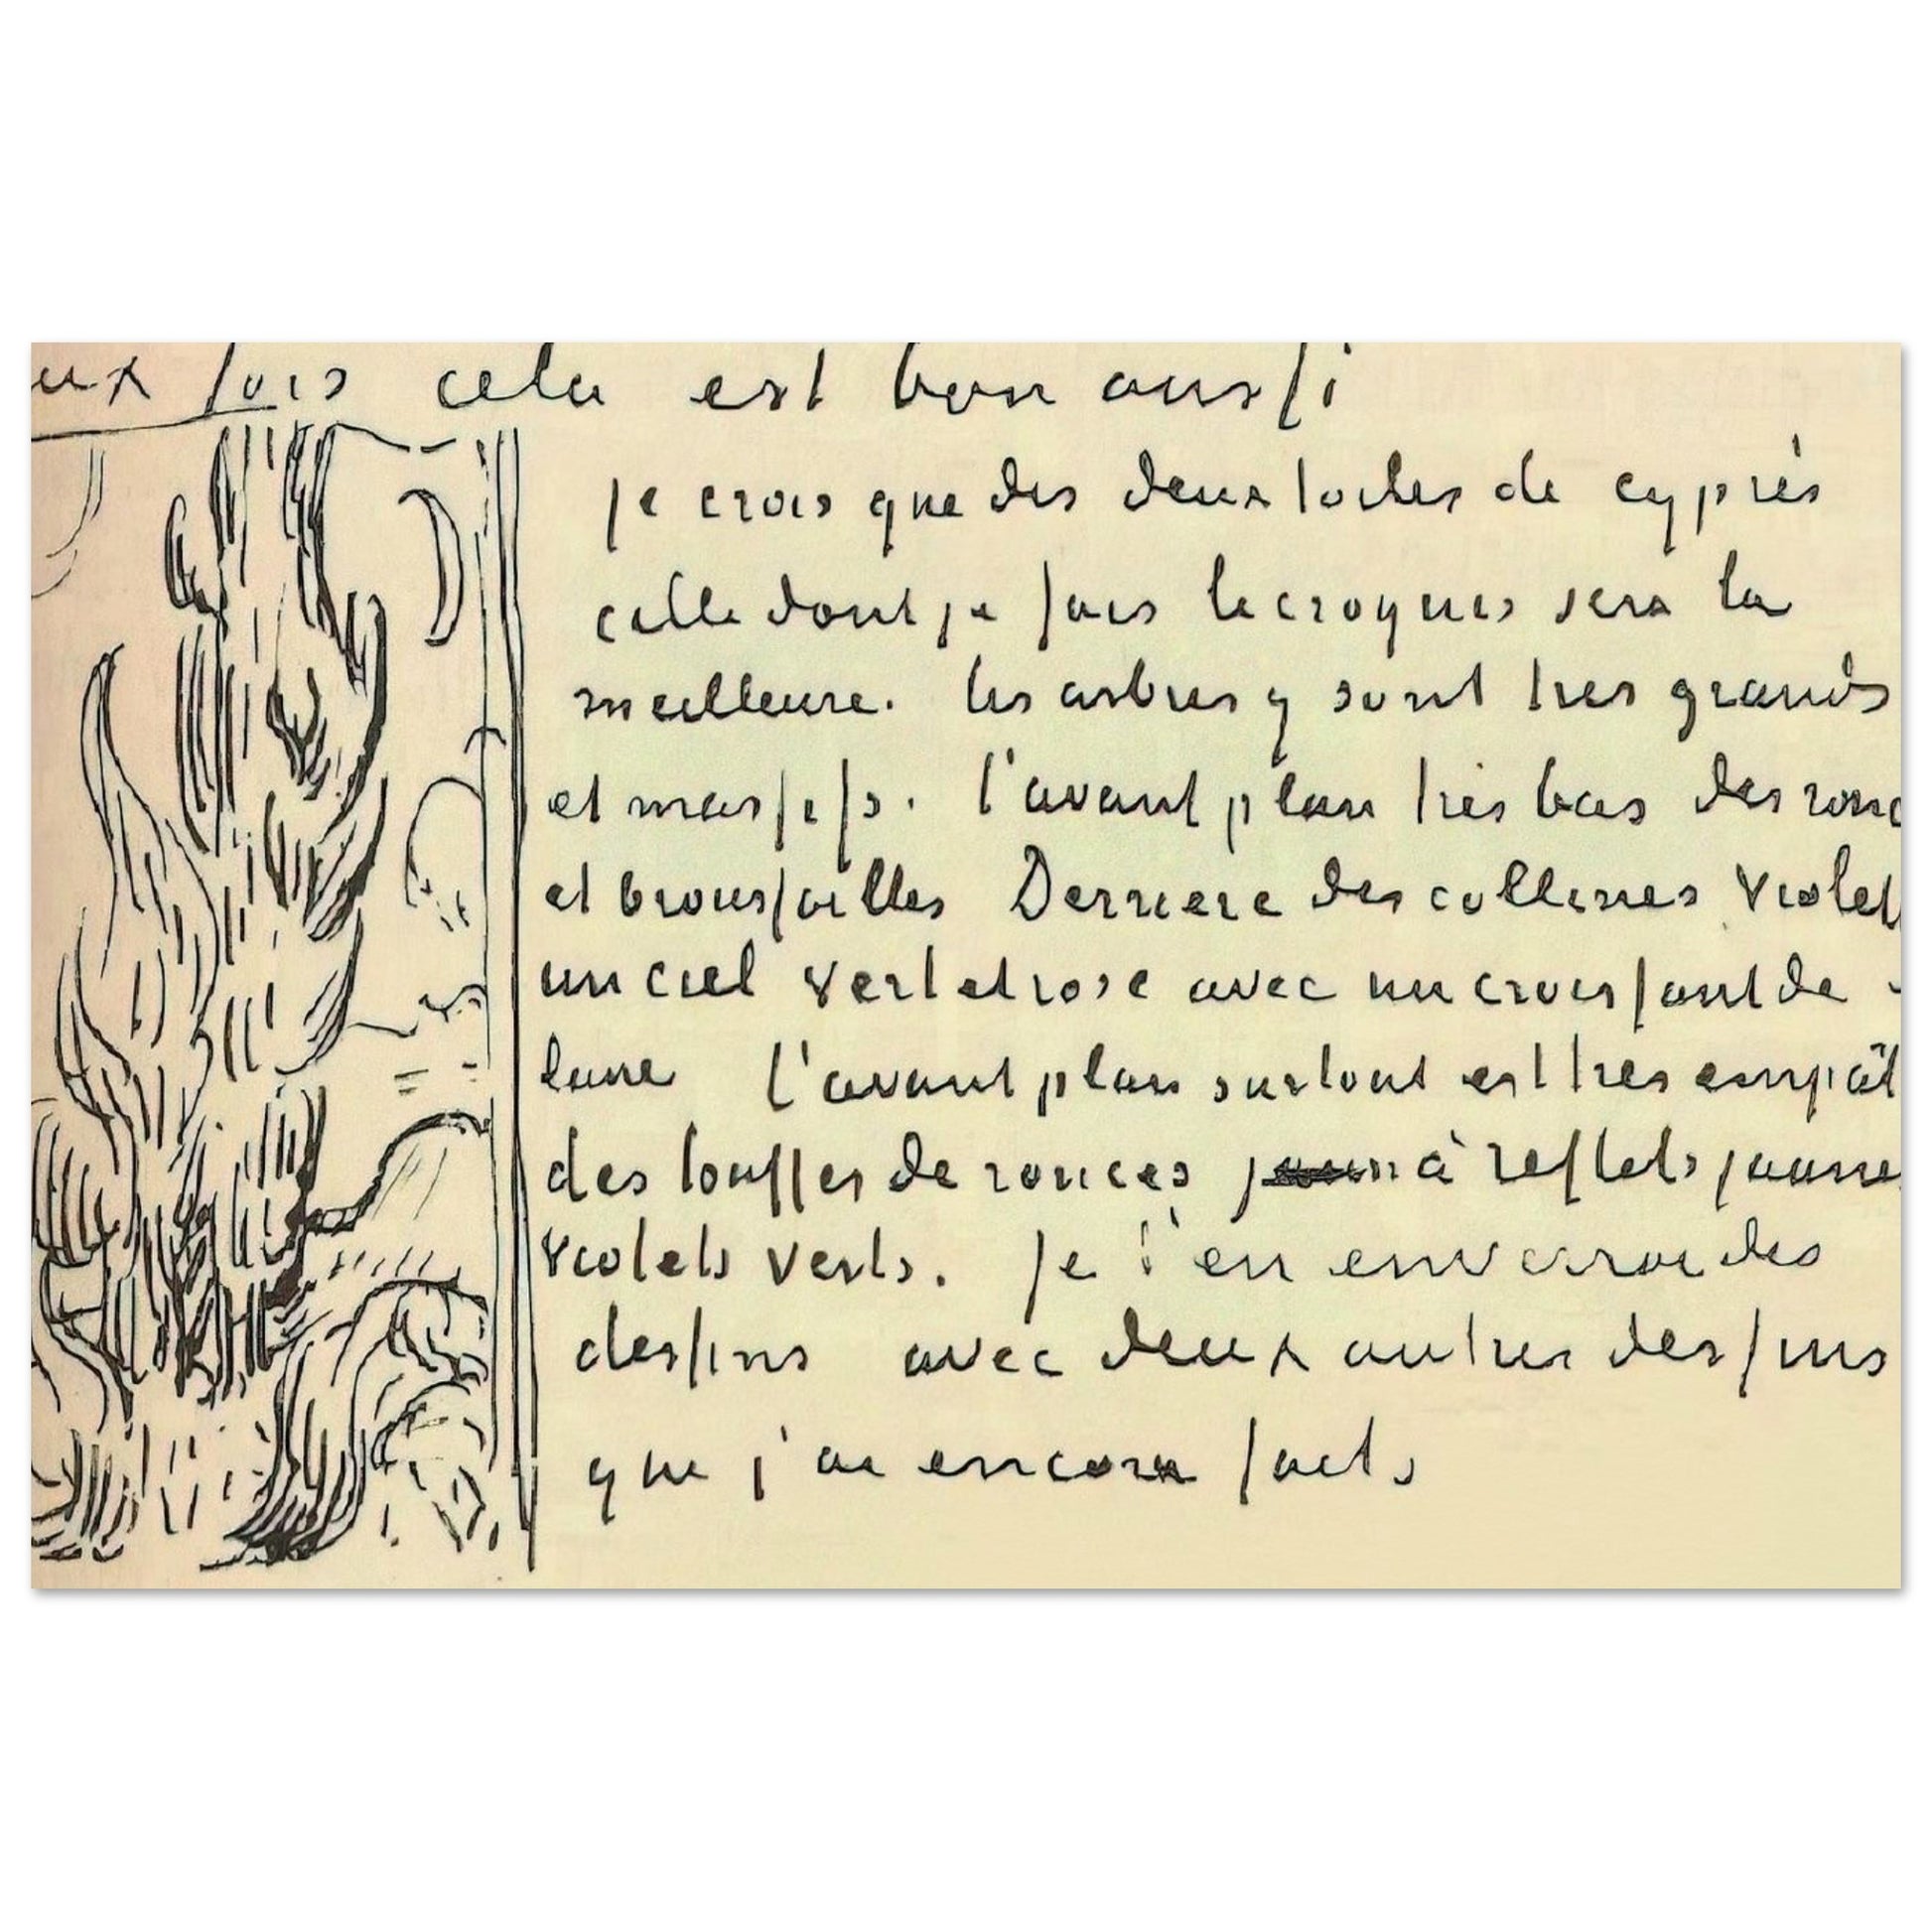 ux fois cela est bon aussi
je crois que des deux toiles de cyprès
celle dont je fais le croquis sera la
meilleure. les arbres y sont tres grands
et massifs. l'avant plan très bas des ronc
et broussailles Derriere des collines violet
un ciel vert et rose avec un croissant de
lune l'avant plan surtout est tres empât
des touffes de ronces à reflets jaune
violets verts. Je t'en enverrai des
dessins avec deux autres dessins
que j'ai encore faits